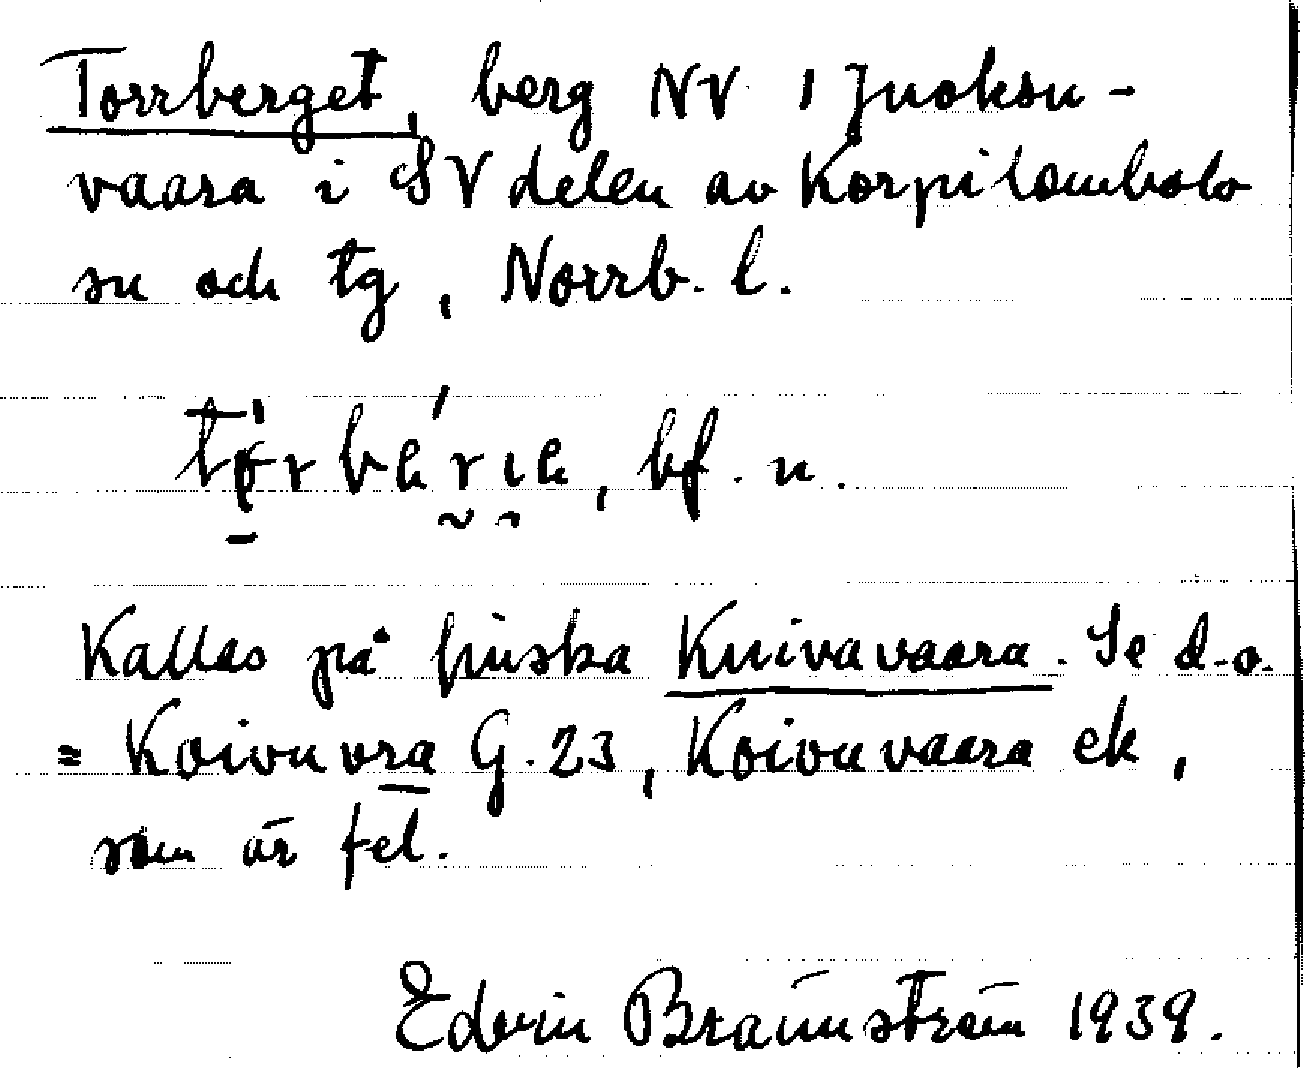 Torrberget, berg NV i Juoksu-
vaara i SV delen av Korpilombolo
sn och tg, Norrb. l.
bf. n.
Kallas på finska Kuivavaara. Se d.o.
= Koivuvra G. 23, Koivuvaara ek,
som är fel.
Edvin Brännström 1939.